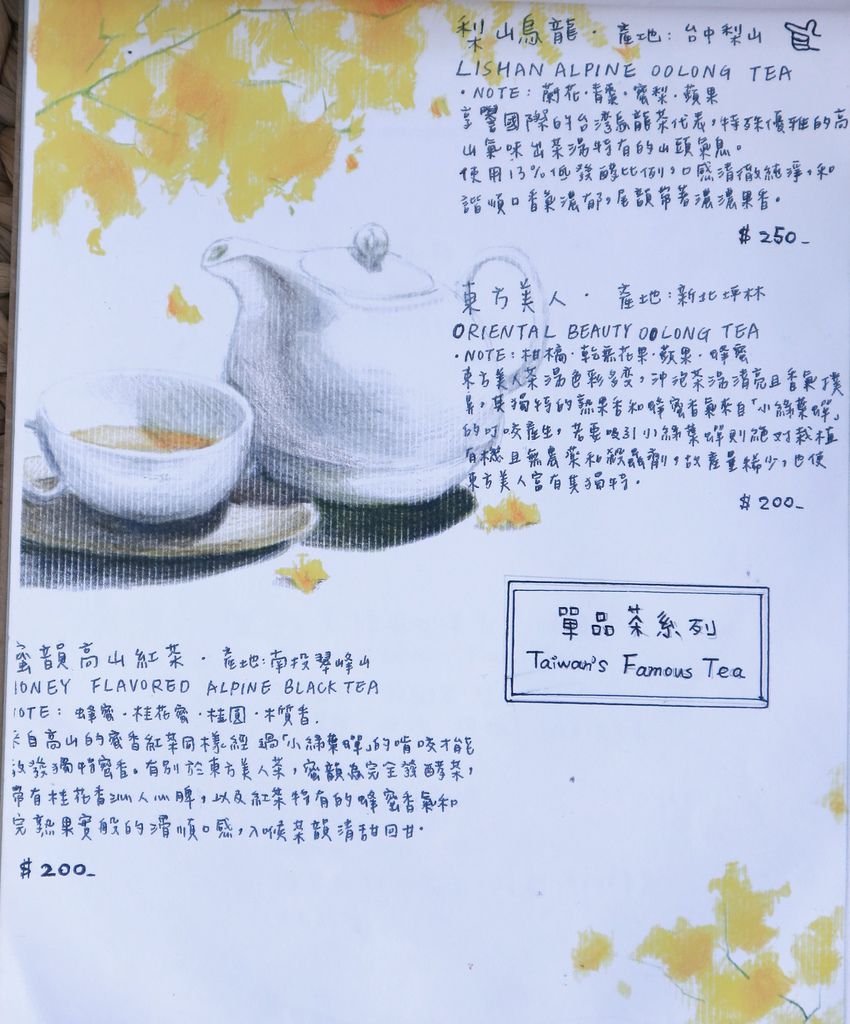 梨山烏龍．產地：台中梨山
LISHAN ALPINE OOLONG TEA
・NOTE：蘭花・青棗・蜜梨・蘋果
享譽國際的台灣烏龍茶代表，特殊優雅的高
山氣味出茶湯特有的山頭氣息。
使用13%低發酵比例，口感清徹純淨，和
諧順口香氣濃郁，尾韻帶著濃濃果香。
$250_
東方美人．產地：新北坪林
ORIENTAL BEAUTY OOLONG TEA
・NOTE：柑橘・乾無花果・蘋果・蜂蜜
東方美人茶湯色彩多變，沖泡茶湯清亮且香氣撲
鼻，其獨特的熟果香和蜂蜜香氣來自「小綠葉蟬」
的叮咬產生，若要吸引小綠葉蟬則絕對栽植
有機且無農藥和殺蟲劑，故產量稀少，也使
東方美人富有其獨特．
$200_
單品茶系列
Taiwan's Famous Tea
蜜韻高山紅茶．產地：南投翠峰山
HONEY FLAVORED ALPINE BLACK TEA
NOTE：蜂蜜・桂花蜜・桂圓・木質香．
來自高山的蜜香紅茶同樣經過「小綠葉蟬」的啃咬才能
散發獨特蜜香。有別於東方美人茶，蜜韻為完全發酵茶，
帶有桂花香沁人心脾，以及紅茶特有的蜂蜜香氣和
完熟果實般的滑順口感，入喉茶韻清甜回甘．
$200_